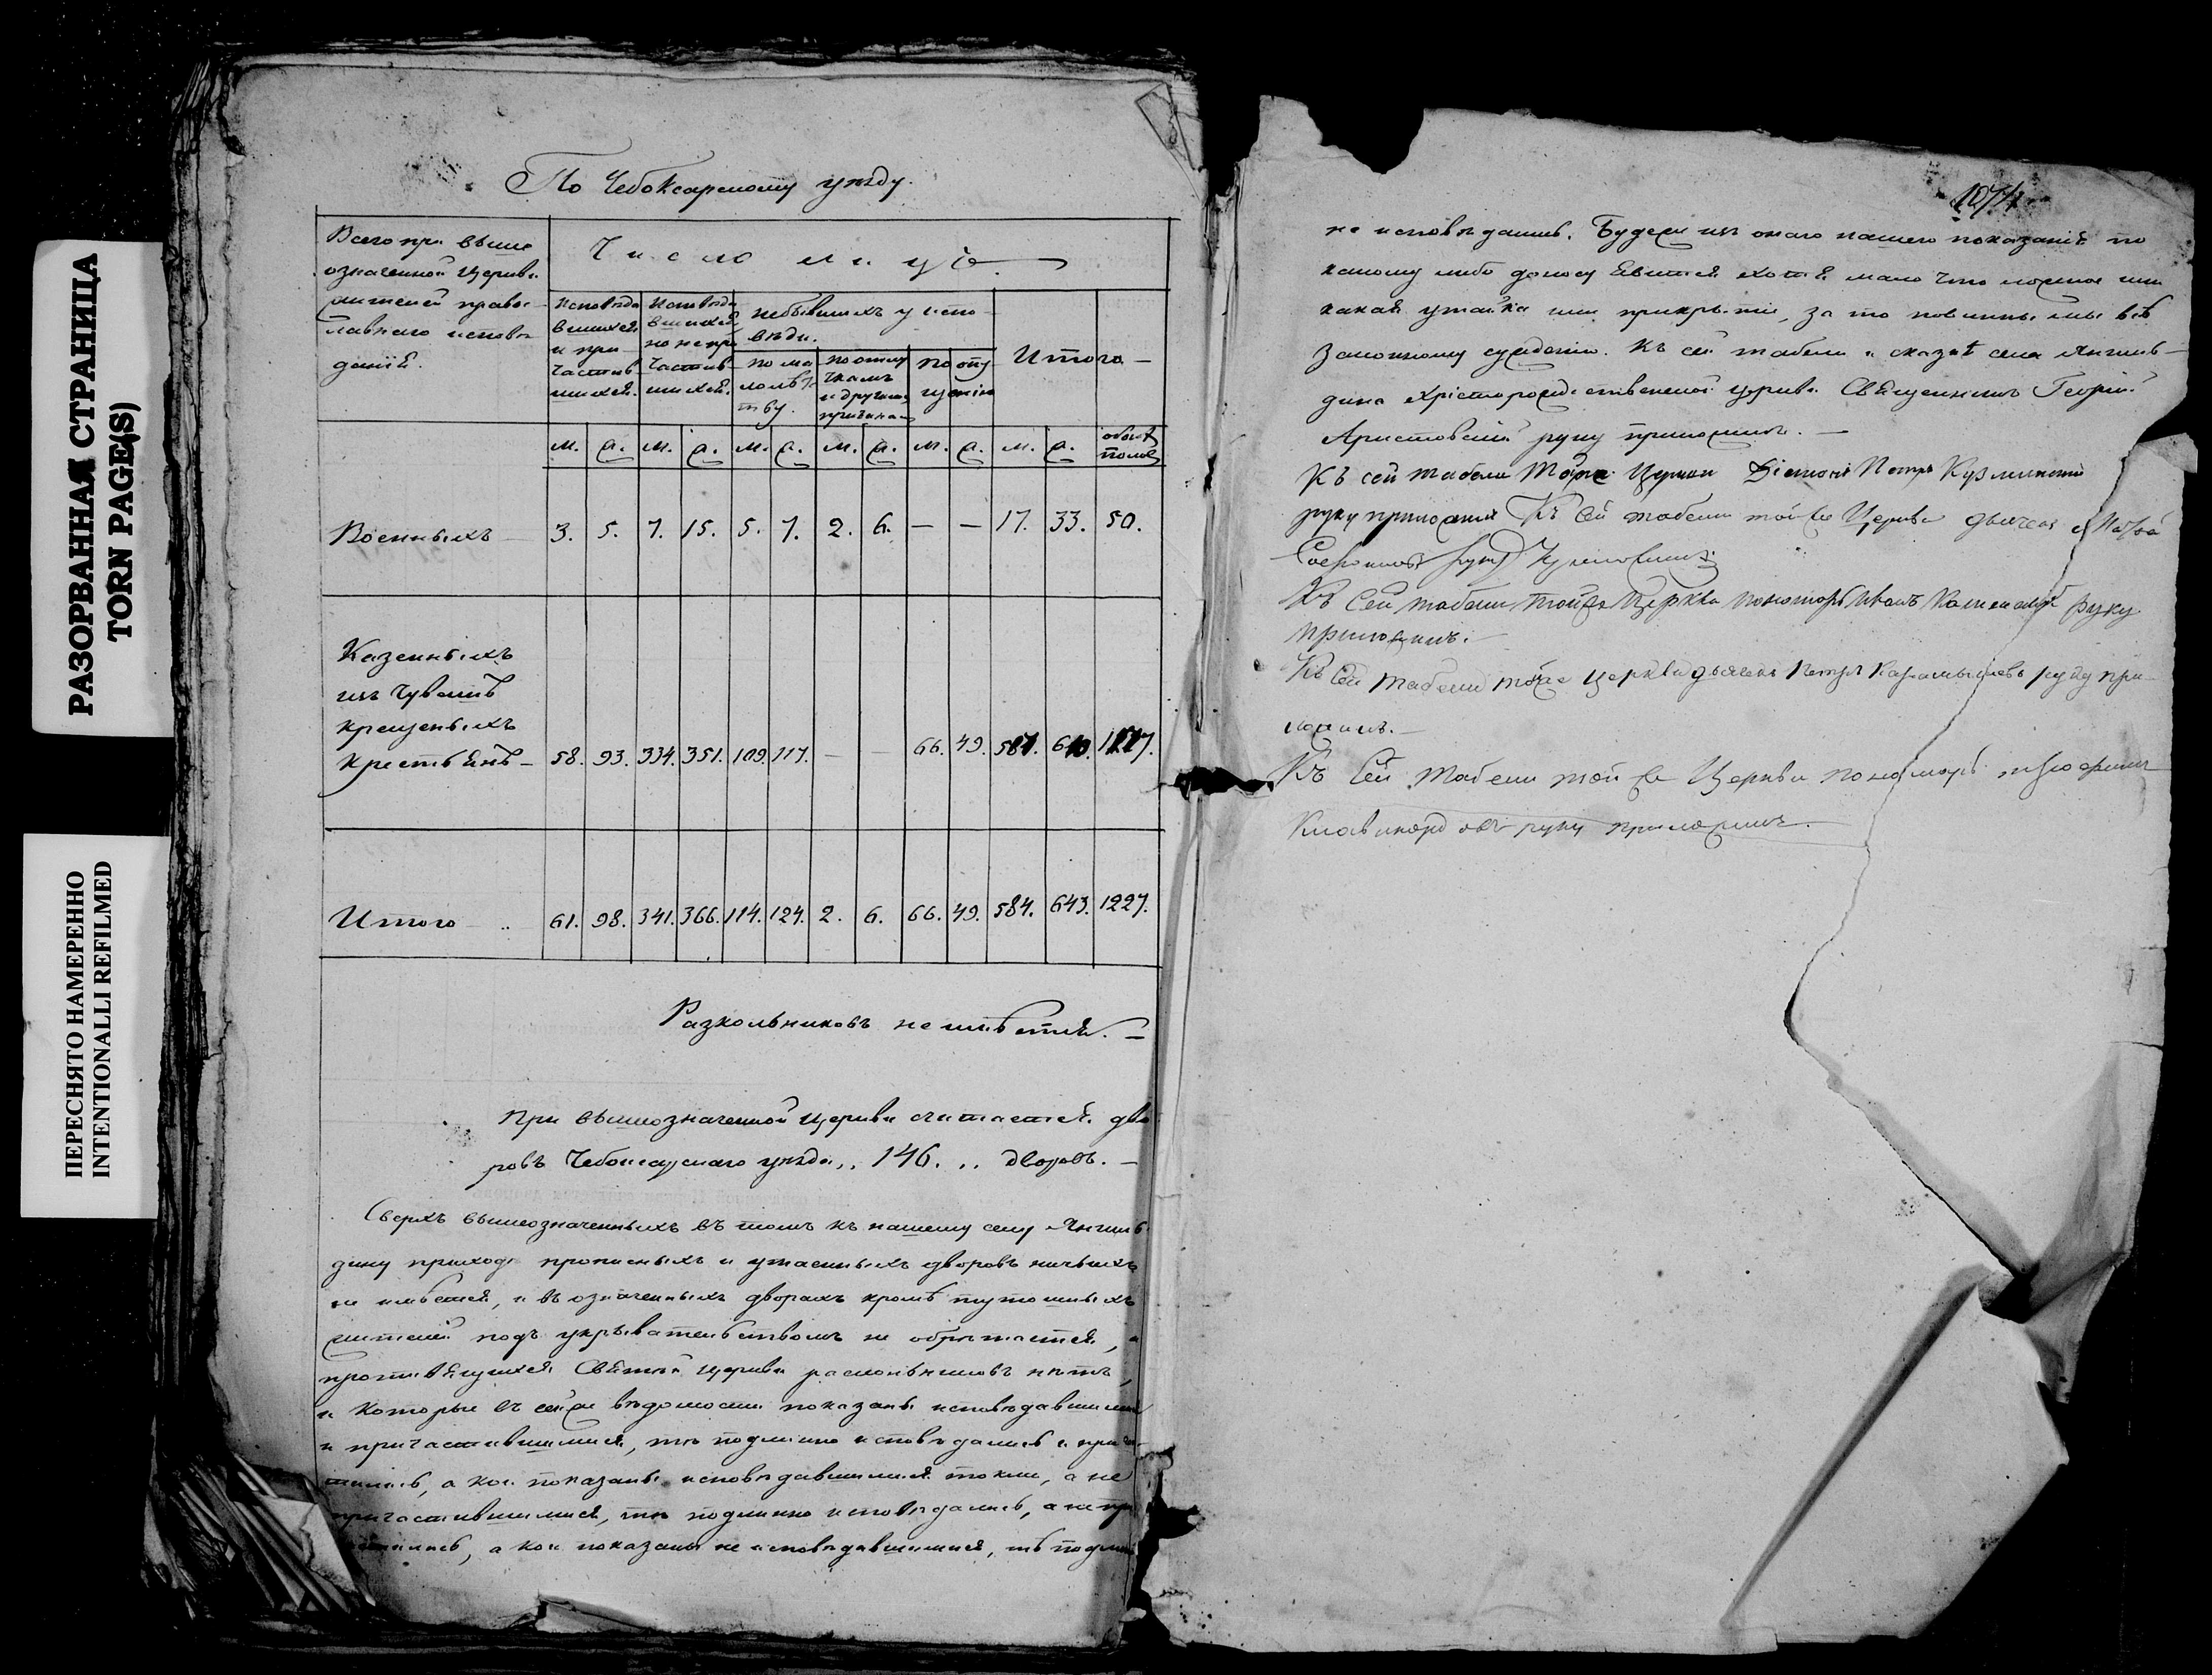 РАЗОРВАННАЯ СТРАНИЦА
TORN PAGE(S)
ПЕРЕСНЯТО НАМЕРЕННО
INTENTIONALLI REFILMED
По Чебоксарскому уѣзду.
Всего при выше
означенной церкви
жителей право-
славнаго исповѣ
данія.
Число лицъ
Исповѣда
вшихся
и при-
частив
шихся.
Исповѣда
вшихся
но не при
частив-
шихся.
небывшихъ у испо
вѣди.
по ма
лолѣт
тву.
по отлу
чкамъ
и другимъ
причинамъ
по опу
щенію
Итого
м. ж. м. ж. м. ж. м. ж. м. ж. м. ж. обоего пола
Военныхъ 3. 5. 7. 15. 5. 7. 2. 6. — — 17. 33. 50.
Казенныхъ
изъ Чувашъ
крещеныхъ
крестьянъ 58. 93. 334. 351. 109. 117. — — 66. 49. 567. 610. 1177.
Итого 61. 98. 341. 366. 114. 124. 2. 6. 66. 49. 584. 643. 1227.
Разкольниковъ не имѣется.
При вышеозначенной церкви считается дво
ровъ Чебоксарскаго уѣзда 146. дворовъ.
Сверхъ вышеозначенныхъ въ томъ къ нашему селу Янгиль
дину приходѣ прописныхъ и утаенныхъ дворовъ ничьихъ
не имѣется, и въ означенныхъ дворахъ кромѣ тутошныхъ
жителей подъ укрывательствомъ не обрѣтается, а
противящихся Святой церкви раскольниковъ нѣтъ,
и которые въ сей же вѣдомости показаны исповѣдавшимися
и причастившимися, тѣ подлинно исповѣдались и прича
стились, а кои показаны исповѣдавшимися токмо, а не
причастившимися, тѣ подлинно исповѣдались, а не при
частились, а кои показаны не исповѣдавшимися, тѣ подлин
1074
не исповѣдались. Будеже изъ онаго нашего показанія по
какому либо доносу явится хотя мало что ложное или
какая утайка или прикрытіе, за то повинны мы всѣ
законному сужденію. Къ сей табели и сказкѣ села Янгиль-
дина Христорождественской церкви Священникъ Георгій
Аристовскій руку приложилъ.
Къ сей табели тойже Церкви Діаконъ Петръ Кузминскій
руку приложилъ Къ сей табели той же Церкви дьячекъ
Софроновъ руку приложилъ.
Къ сей табели тойже Церкви пономарь Иванъ руку
приложилъ.
Къ сей табели тойже церкви дьячекъ Петръ Карамышевъ руку при-
ложилъ.
Къ Сей табели той же Церкви пономарь
руку приложилъ.